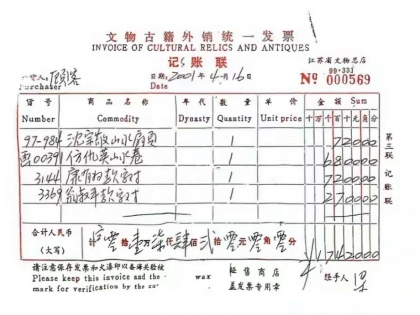 文物古籍外销统一发票
INVOICE OF CULTURAL RELICS AND ANTIQUES
记账联 江苏省文物总店
人: 顾客 日期: 2001年4月16 99·331
Purchaser Date № 000569
货号 商品名称 年代 数量 单价 金额 Sum
Number Commodity Dynasty Quantity Unit price 十万千百十元角分
97-984 山水 1 72000
00391 仿仇英山水卷 1 680000
3144 康有为款字对 1 720000
3369 翁叔平款字对 1 270000
第三联 记账联
合计人民币 计 零拾壹万柒仟肆佰贰拾零元零角零分 ¥1742000
(大写)
请注意保存发票和火漆印以备海关验核 经售商店 经手人
Please keep this invoice and the wax 盖发票专用章
mark for verification by the